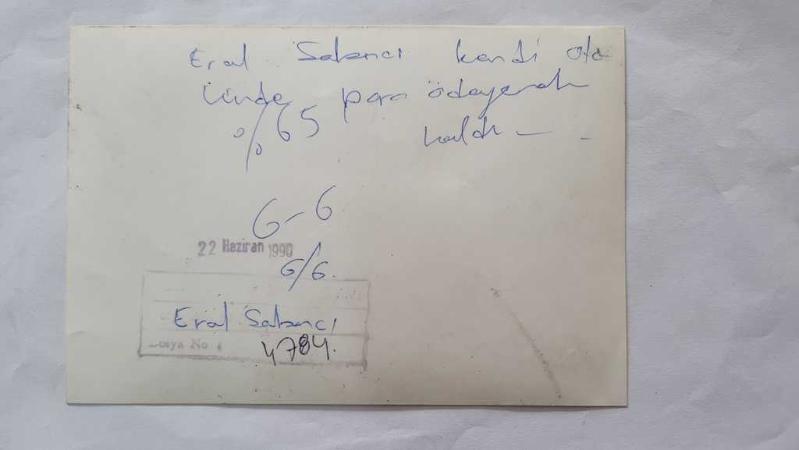 Erol Sabancı kendi ote
linde para ödeyerek
%65 kaldı - -
6-6
22 Haziran 1990
6/6.
Erol Sabancı
Dosya No : 4784.